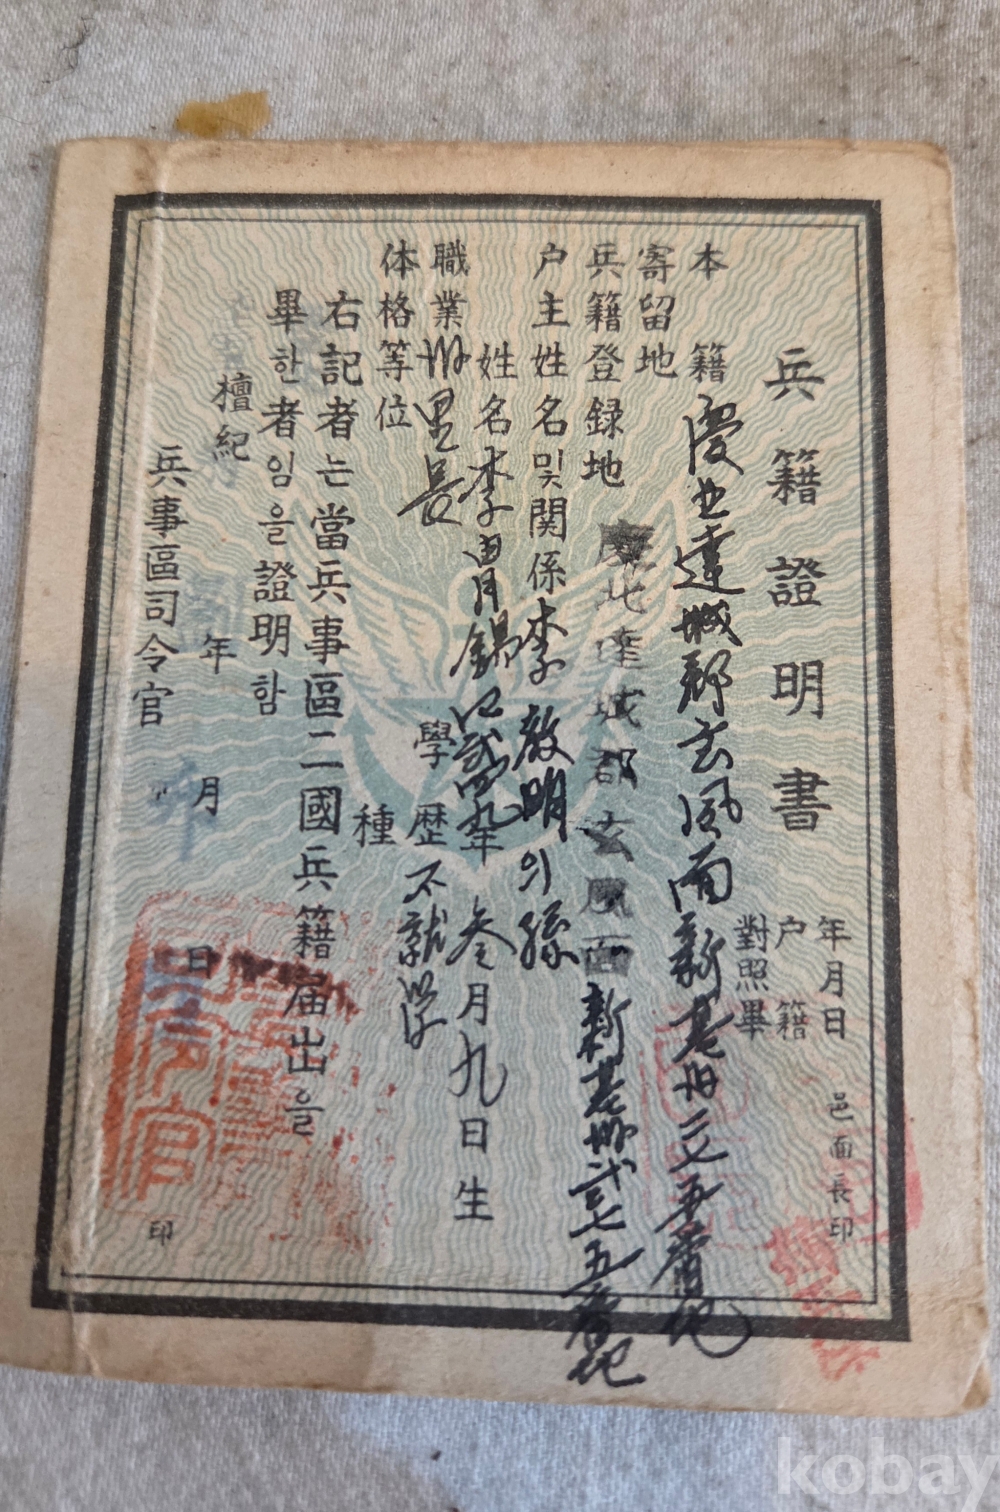 兵籍證明書
年月日 邑面長印
戸籍
對照畢
本籍 慶北達城郡玄風面新基洞二七五番地
寄留地
兵籍登録地 慶北達城郡玄風面新基洞貳七五番地
户主姓名및関係 李敎明의孫
姓名 李 錫 四貳四九年 叁月九日生
職業 里長 學歴 不就学
体格等位 種
右記者는當兵事區二國兵籍届出을
畢한者임을證明함
檀紀 年 月 日
兵事區司令官 印
kobay